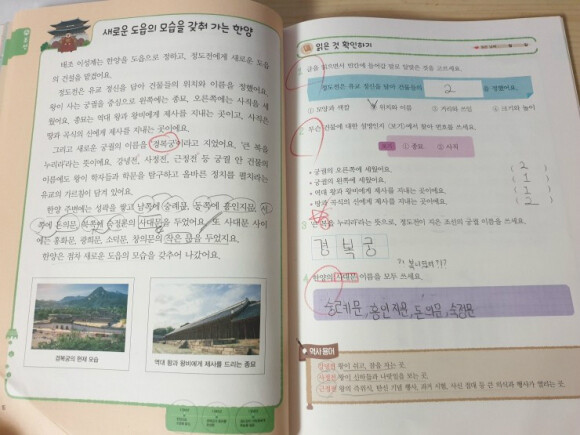 새로운 도읍의 모습을 갖춰 가는 한양
태조 이성계는 한양을 도읍으로 정하고, 정도전에게 새로운 도읍
의 건설을 맡겼어요.
정도전은 유교 정신을 담아 건물들의 위치와 이름을 정했어요.
왕이 사는 궁궐을 중심으로 왼쪽에는 종묘, 오른쪽에는 사직을 세
웠어요. 종묘는 역대 왕과 왕비에게 제사를 지내는 곳이고, 사직은
땅과 곡식의 신에게 제사를 지내는 곳이에요.
그리고 새로운 궁궐의 이름을 '경복궁'이라고 지었어요. '큰 복을
누리라'라는 뜻이에요. 강녕전, 사정전, 근정전 등 궁궐 안 건물의
이름에도 왕이 학자들과 학문을 탐구하고 올바른 정치를 펼치라는
유교의 가르침이 담겨 있어요.
한양 주변에는 성곽을 쌓고 남쪽에 숭례문, 동쪽에 흥인지문, 서
쪽에 돈의문, 북쪽에 숙정문의 사대문을 두었어요. 또 사대문 사이
에는 홍화문, 광희문, 소덕문, 창의문의 작은 문을 두었지요.
한양은 점차 새로운 도읍의 모습을 갖추어 나갔어요.
경복궁의 현재 모습
역대 왕과 왕비에게 제사를 드리는 종묘
읽은 것 확인하기
1 글을 읽으면서 빈칸에 들어갈 말로 알맞은 것을 고르세요.
정도전은 유교 정신을 담아 건물들의 2 을 정했어요.
① 모양과 색깔 ② 위치와 이름 ③ 거리와 쓰임 ④ 크기와 높이
2 무슨 건물에 대한 설명인지 〈보기〉에서 찾아 번호를 쓰세요.
보기 ① 종묘 ② 사직
• 궁궐의 오른쪽에 세웠어요. ( 2 )
• 궁궐의 왼쪽에 세웠어요. ( 1 )
• 역대 왕과 왕비에게 제사를 지내는 곳이에요. ( 1 )
• 땅과 곡식의 신에게 제사를 지내는 곳이에요. ( 2 )
3 '큰 복을 누리라'라는 뜻으로, 정도전이 지은 조선의 궁궐 이름을 쓰세요.
경 복 궁
4 한양의 사대문 이름을 모두 쓰세요.
숭례문, 흥인지문, 돈의문, 숙정문
역사 용어
강녕전 왕이 쉬고, 잠을 자는 곳.
사정전 왕이 신하들과 나랏일을 보는 곳.
근정전 왕의 즉위식, 탄신 기념 행사, 과거 시험, 사신 접대 등 큰 의식과 행사가 열리는 곳.